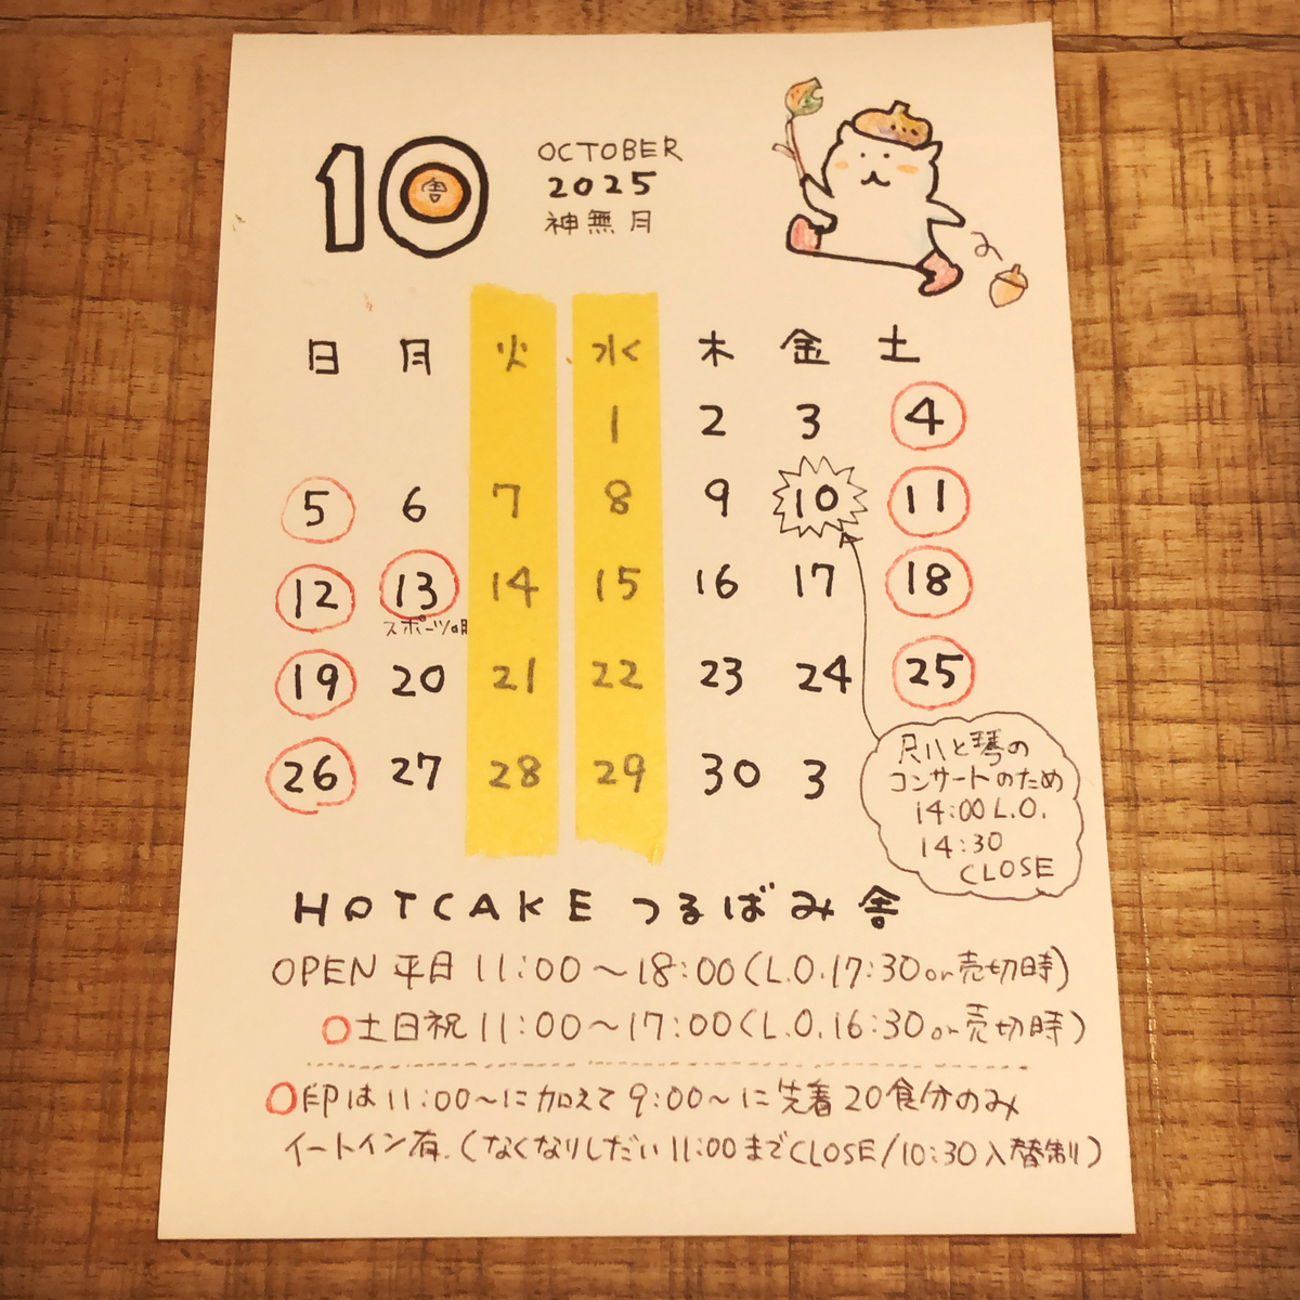 10
舎
OCTOBER
2025
神無月
日 月 火 水 木 金 土
1 2 3 4
5 6 7 8 9 10 11
12 13 14 15 16 17 18
スポーツの
19 20 21 22 23 24 25
26 27 28 29 30 3
尺八と琴の
コンサートのため
14:00 L.O.
14:30
CLOSE
HOTCAKE つるばみ舎
OPEN 平日 11:00〜18:00(L.O.17:30or売切時)
○土日祝 11:00〜17:00(L.O.16:30or売切時)
○印は11:00〜に加えて9:00〜に先着20食分のみ
イートイン有.(なくなりしだい11:00までCLOSE/10:30入替制)